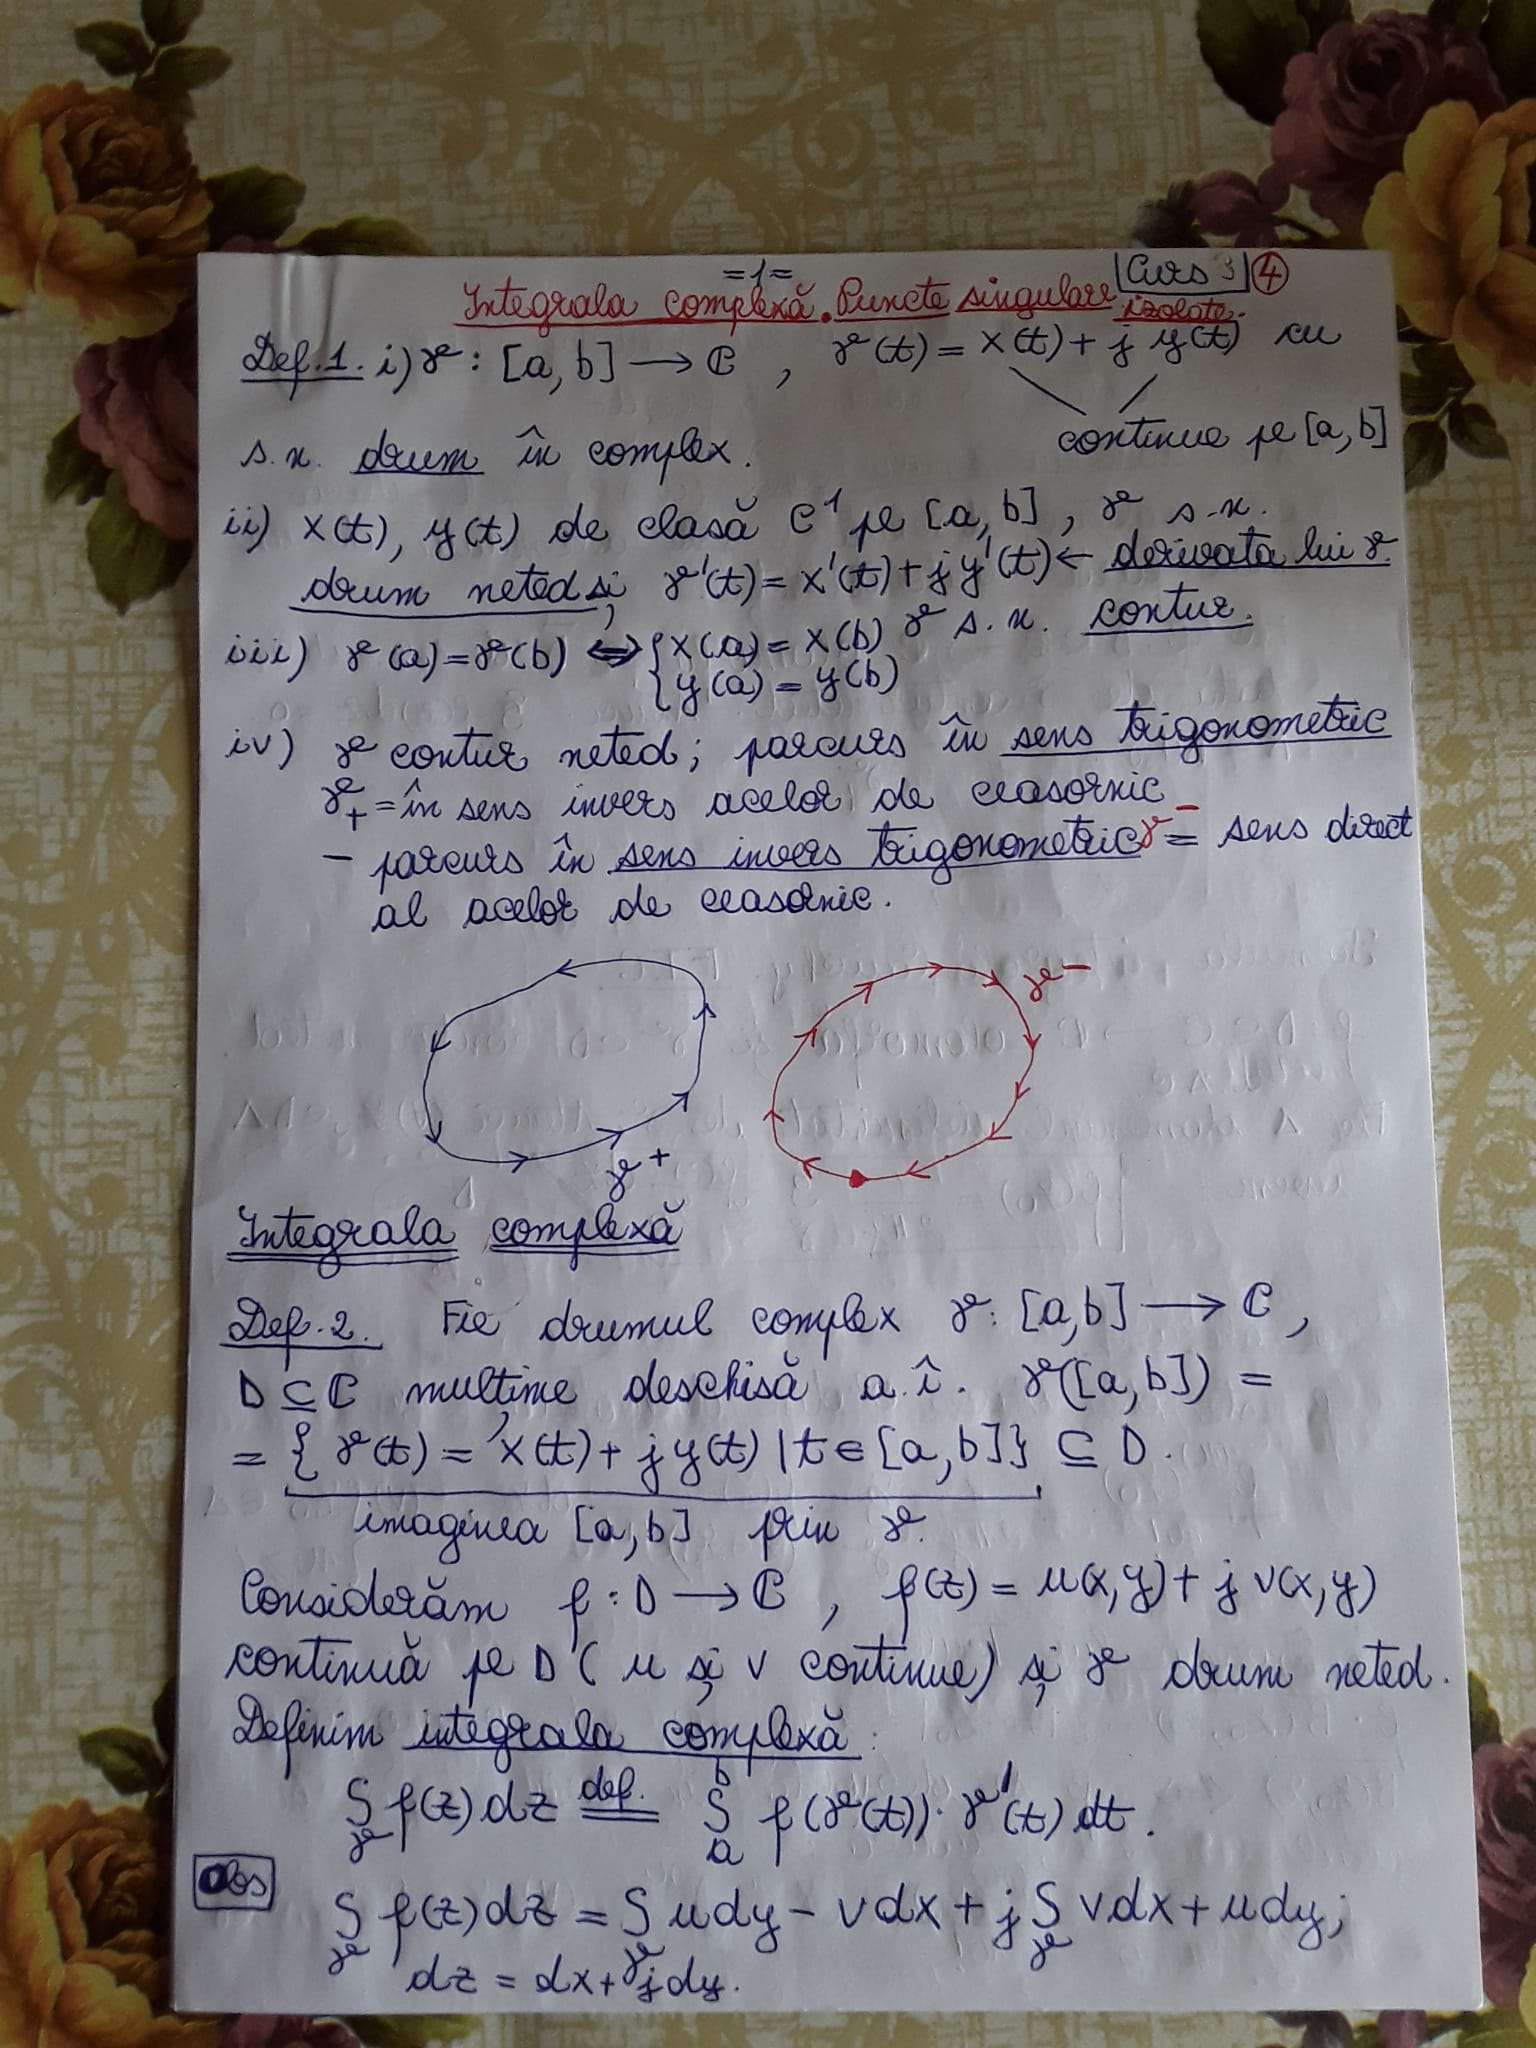 =1= Curs 3 4
Integrala complexă. Puncte singulare izolate.
Def.1. i) γ : [a,b] → ℂ , γ(t) = x(t) + j y(t) cu
continue pe [a,b]
s.n. drum în complex.
ii) x(t), y(t) de clasă C¹ pe [a,b], γ s.n.
drum neted și γ'(t) = x'(t) + j y'(t) ← derivata lui γ.
iii) γ(a) = γ(b) ⇔ { x(a) = x(b) γ s.n. contur.
{ y(a) = y(b)
iv) γ contur neted; parcurs în sens trigonometric
γ+ = în sens invers acelor de ceasornic
- parcurs în sens invers trigonometric γ- = sens direct
al acelor de ceasornic.
γ-
γ+
Integrala complexă
Def.2. Fie drumul complex γ: [a,b] → ℂ,
D ⊆ ℂ mulțime deschisă a.î. γ([a,b]) =
= { γ(t) = x(t) + j y(t) | t ∈ [a,b] } ⊆ D.
imaginea [a,b] prin γ.
Considerăm f : D → ℂ , f(z) = u(x,y) + j v(x,y)
continuă pe D (u și v continue) și γ drum neted.
Definim integrala complexă:
∫γ f(z) dz def. = ∫ₐᵇ f(γ(t)) · γ'(t) dt.
Obs
∫γ f(z) dz = ∫γ u dy - v dx + j ∫γ v dx + u dy;
dz = dx + j dy.